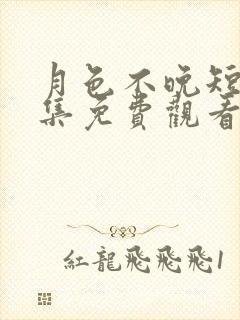 月色不晚短
集免費觀看
紅龍飛飛飛1